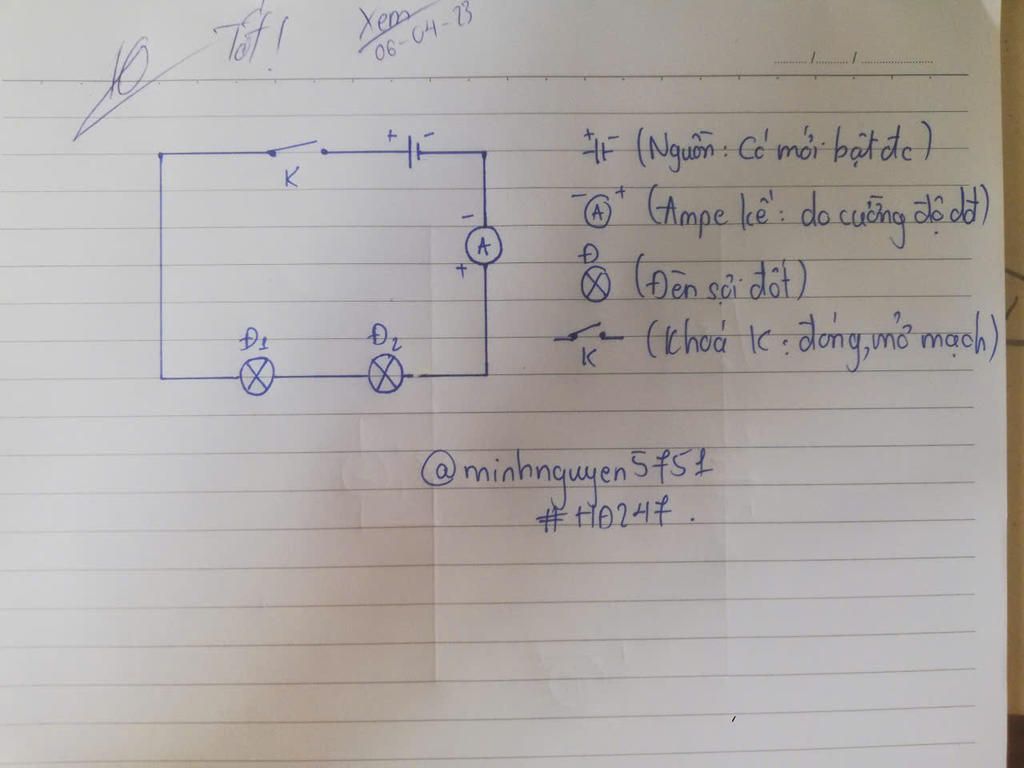 10 Tốt! Xem
06-04-23
....... / ....... / ...............
+ -
K
-
A
+
Đ1 Đ2
+ - (Nguồn: Có mới bật đc)
- A + (Ampe kế: do cường độ dđ)
Đ
(Đèn sợi đốt)
K (Khoá K: đóng, mở mạch)
@minhnguyen5751
#HĐ247.